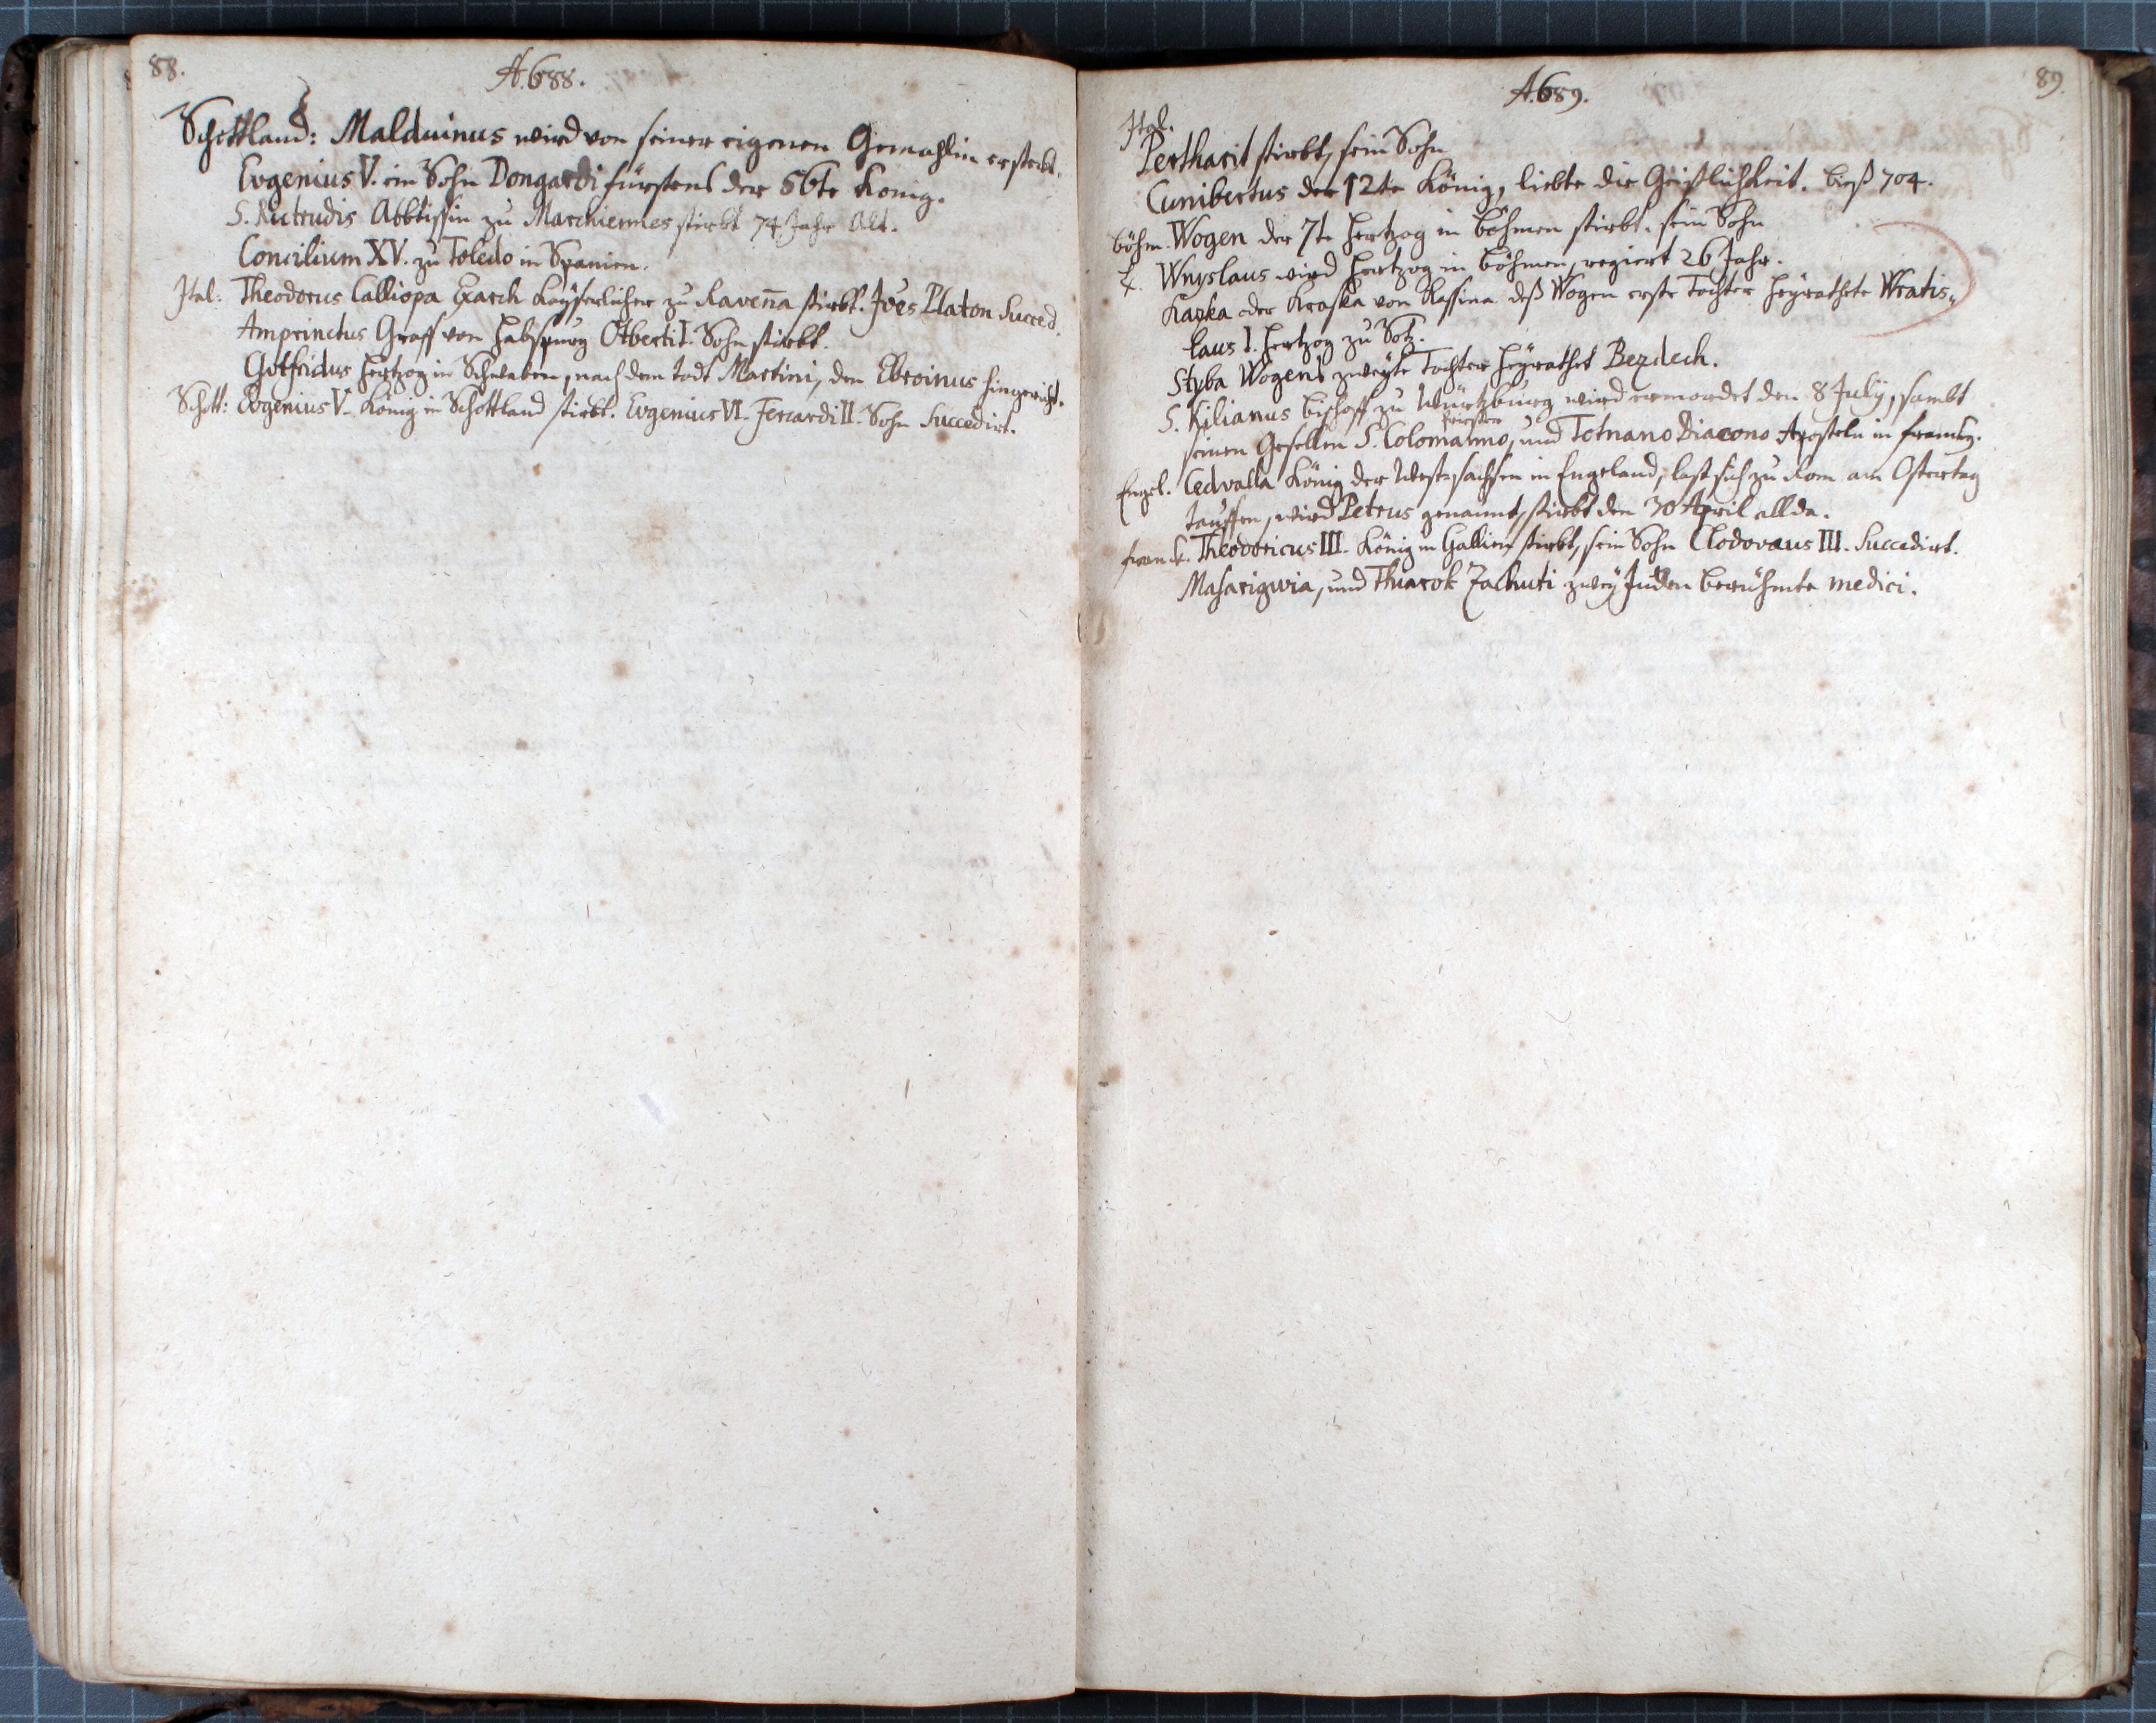 88.
A. 688.
Schottland: Malduinus wird von seiner eigenen Gemahlin ersteckt.
Eugenius V. ein Sohn Dongardi fürstens der 56te König.
S. Rictrudis Abbtissin zu Marchiennes stirbt 74 Jahr Alt.
Concilium XV. zu Toledo in Spanien.
Ital: Theodorus Calliopa Exarch Kayserlicher zu Ravenna stirbt. Joes Platon Succed.
Amprinctus Graff von Habspurg Otberti I. Sohn stirbt.
Gotfridus Hertzog in Schwaben, nach dem todt Martini, den Ebroinus hingericht.
Schott: Eugenius V. König in Schottland stirbt. Eugenius VI. Fercardi II. Sohn Succedirt.
89.
A. 689.
Ital.
Pertharit stirbt, sein Sohn
Cunibertus der 12te König, liebte die Geistlichkeit. bieß 704.
böhm. Wogen der 7te Hertzog in böhmen stirbt. sein Sohn
Wnyslaus wird Hertzog in böhmen, regiert 26 Jahr.
Kaska oder Kraska von Kassina deß Wogen erste Tochter heyrathete Wratis„
laus I. Hertzog zu Sotz.
Styba Wogens zweyte Tochter heyrathet Bezdech.
S. Kilianus bischoff zu Würtzburg wird ermordet den 8 July, sambt
priester
seinen Gesellen S. Colomanno, und Totnano Diacono Aposteln in franck.
Engel. Cedvalla König der Westsachsen in Engeland, last sich zu Rom am Ostertag
tauffen, wird Petrus genannt, stirbt den 30 April allda.
franck. Theodoricus III. König in Gallien stirbt, sein Sohn Clodovaeus III. Succedirt.
Masarigwia, und Thiarok Zachuti zwey Juden berühmte medici.